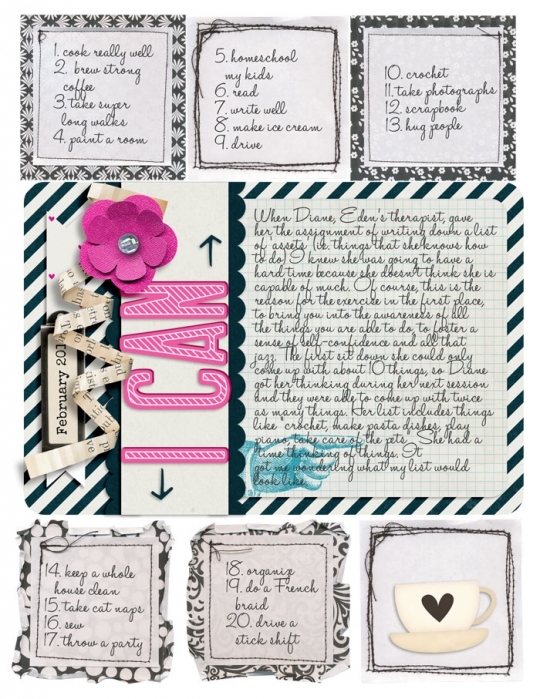 1. cook really well
2. brew strong
coffee
3. take super
long walks
4. paint a room
5. homeschool
my kids
6. read
7. write well
8. make ice cream
9. drive
10. crochet
11. take photographs
12. scrapbook
13. hug people
February 201
I CAN
When Diane, Eden's therapist, gave
her the assignment of writing down a list
of "assets" (i.e. things that she knows how
to do) I knew she was going to have a
hard time because she doesn't think she is
capable of much. Of course, this is the
reason for the exercise in the first place,
to bring you into the awareness of all
the things you are able to do, to foster a
sense of self-confidence and all that
jazz. The first sit down she could only
come up with about 10 things, so Diane
got her thinking during her next session
and they were able to come up with twice
as many things. Her list includes things
like "crochet, make pasta dishes, play
piano, take care of the pets". She had a
time thinking of things. It
got me wondering what my list would
look like.
14. keep a whole
house clean
15. take cat naps
16. sew
17. throw a party
18. organize
19. do a French
braid
20. drive a
stick shift